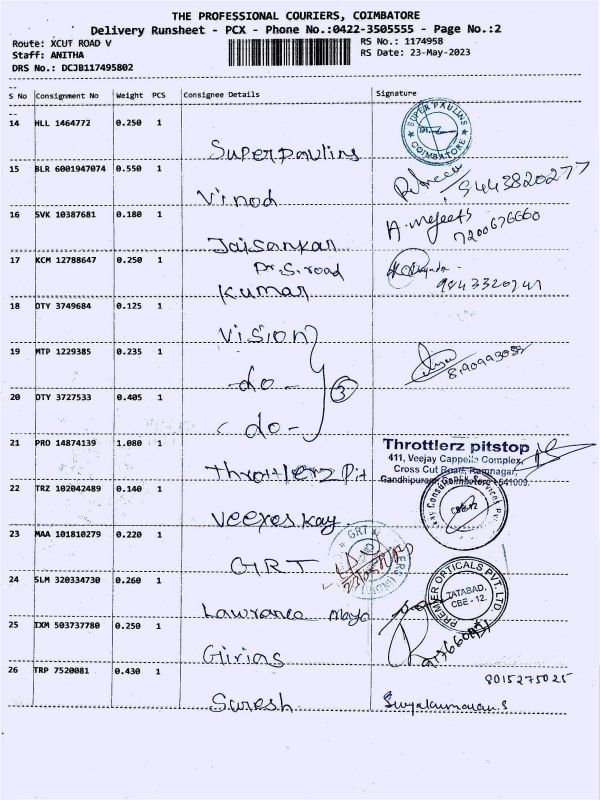 THE PROFESSIONAL COURIERS, COIMBATORE
Delivery Runsheet - PCX - Phone No.:0422-3505555 - Page No.:2
Route: XCUT ROAD V
RS No.: 1174958
Staff: ANITHA
RS Date: 23-May-2023
DRS No.: DCJB117495802
S No Consignment No Weight PCS Consignee Details Signature
14 HLL 1464772 0.250 1
SUPER PAULINS
COIMBATORE
Superpaulins
15 BLR 6001947074 0.550 1
9443820277
Vinod
16 SVK 10387681 0.180 1
7200676660
Jaisankar
Dr.S.road
17 KCM 12788647 0.250 1
9843320741
Kumar
18 OTY 3749684 0.125 1
Vision
19 MTP 1229385 0.235 1
-do-
3
20 OTY 3727533 0.405 1
-do-
21 PRO 14874139 1.080 1
Throttlerz pitstop
411, Veejay Cappella Complex,
Cross Cut Road, Ramnagar,
Gandhipuram, Coimbatore - 641009.
Throttlerz Pit
22 TRZ 102042489 0.140 1
CBE-12
Veexes Kay
23 MAA 101810279 0.220 1
GRT
GRT
24 SLM 320334730 0.260 1
PREMIER OPTICALS PVT. LTD.
TATABAD,
CBE - 12.
Lawrance Mayo
25 IXM 503737780 0.250 1
Girias
26 TRP 7520081 0.430 1
8015275025
Suresh
Suryakumaran.S